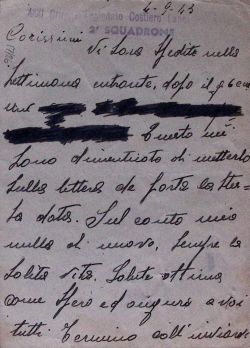 4-9-43
2° SQUADRONE
Carissimi
Vi sara spedito nella
settimana entrante, dopo il
una
Questo mi
sono dimenticato di metterlo
sulla lettera che porta la stes-
sa data. Sul conto mio
nulla di nuovo, sempre la
solita vita. Salute ottima
come spero ed auguro a voi
tutti Termino coll'inviarvi